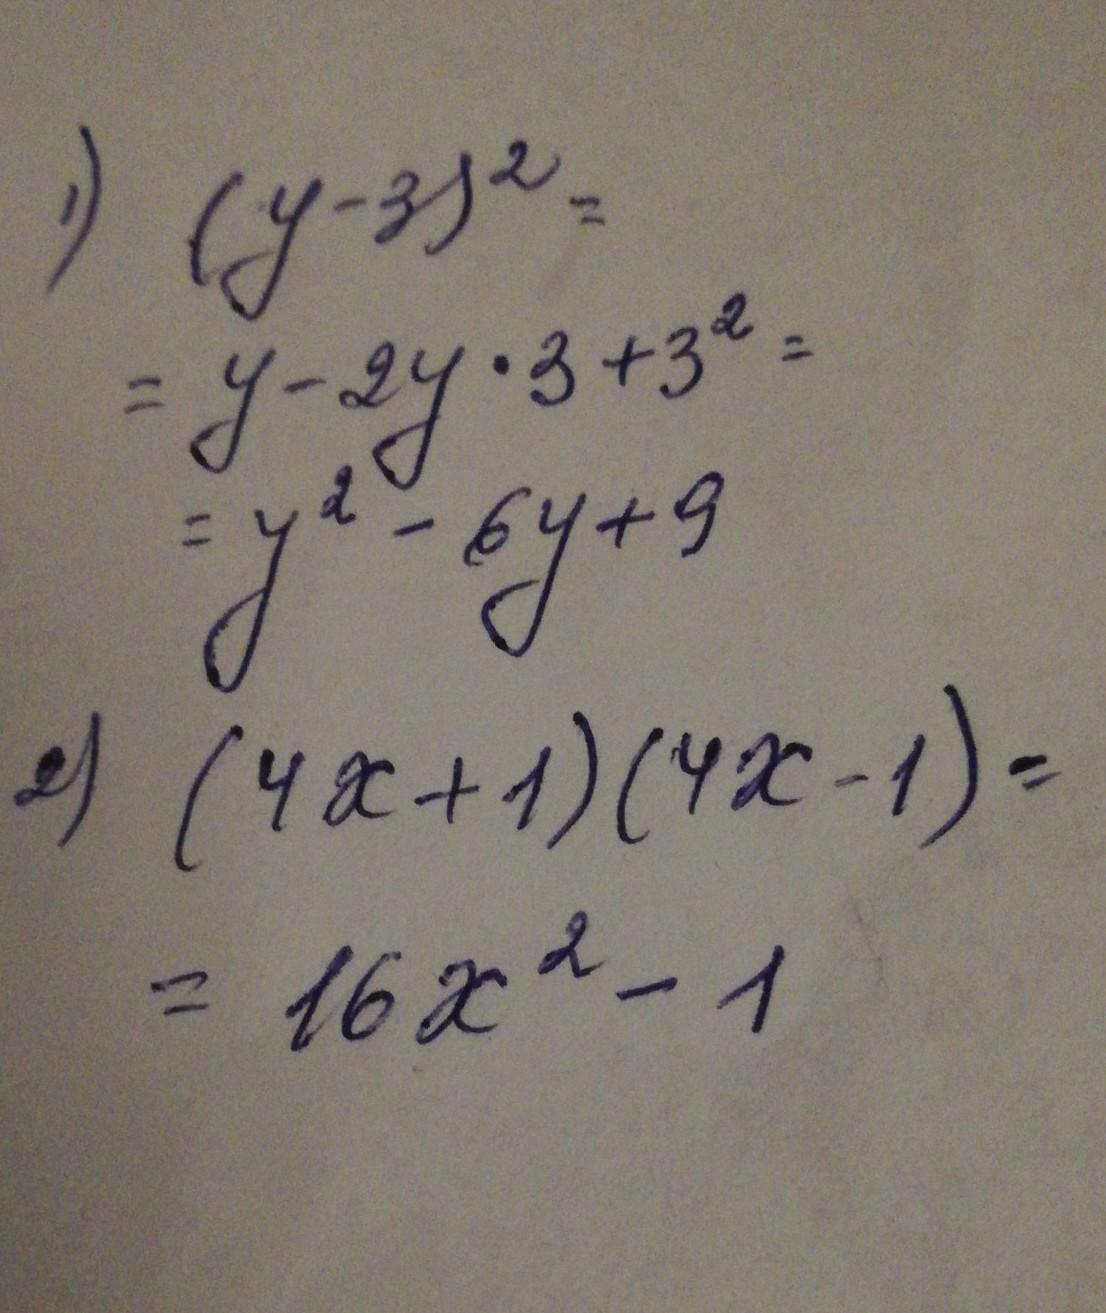 1) (y-3)² =
= y - 2y · 3 + 3² =
= y² - 6y + 9
2) (4x + 1)(4x - 1) =
= 16x² - 1